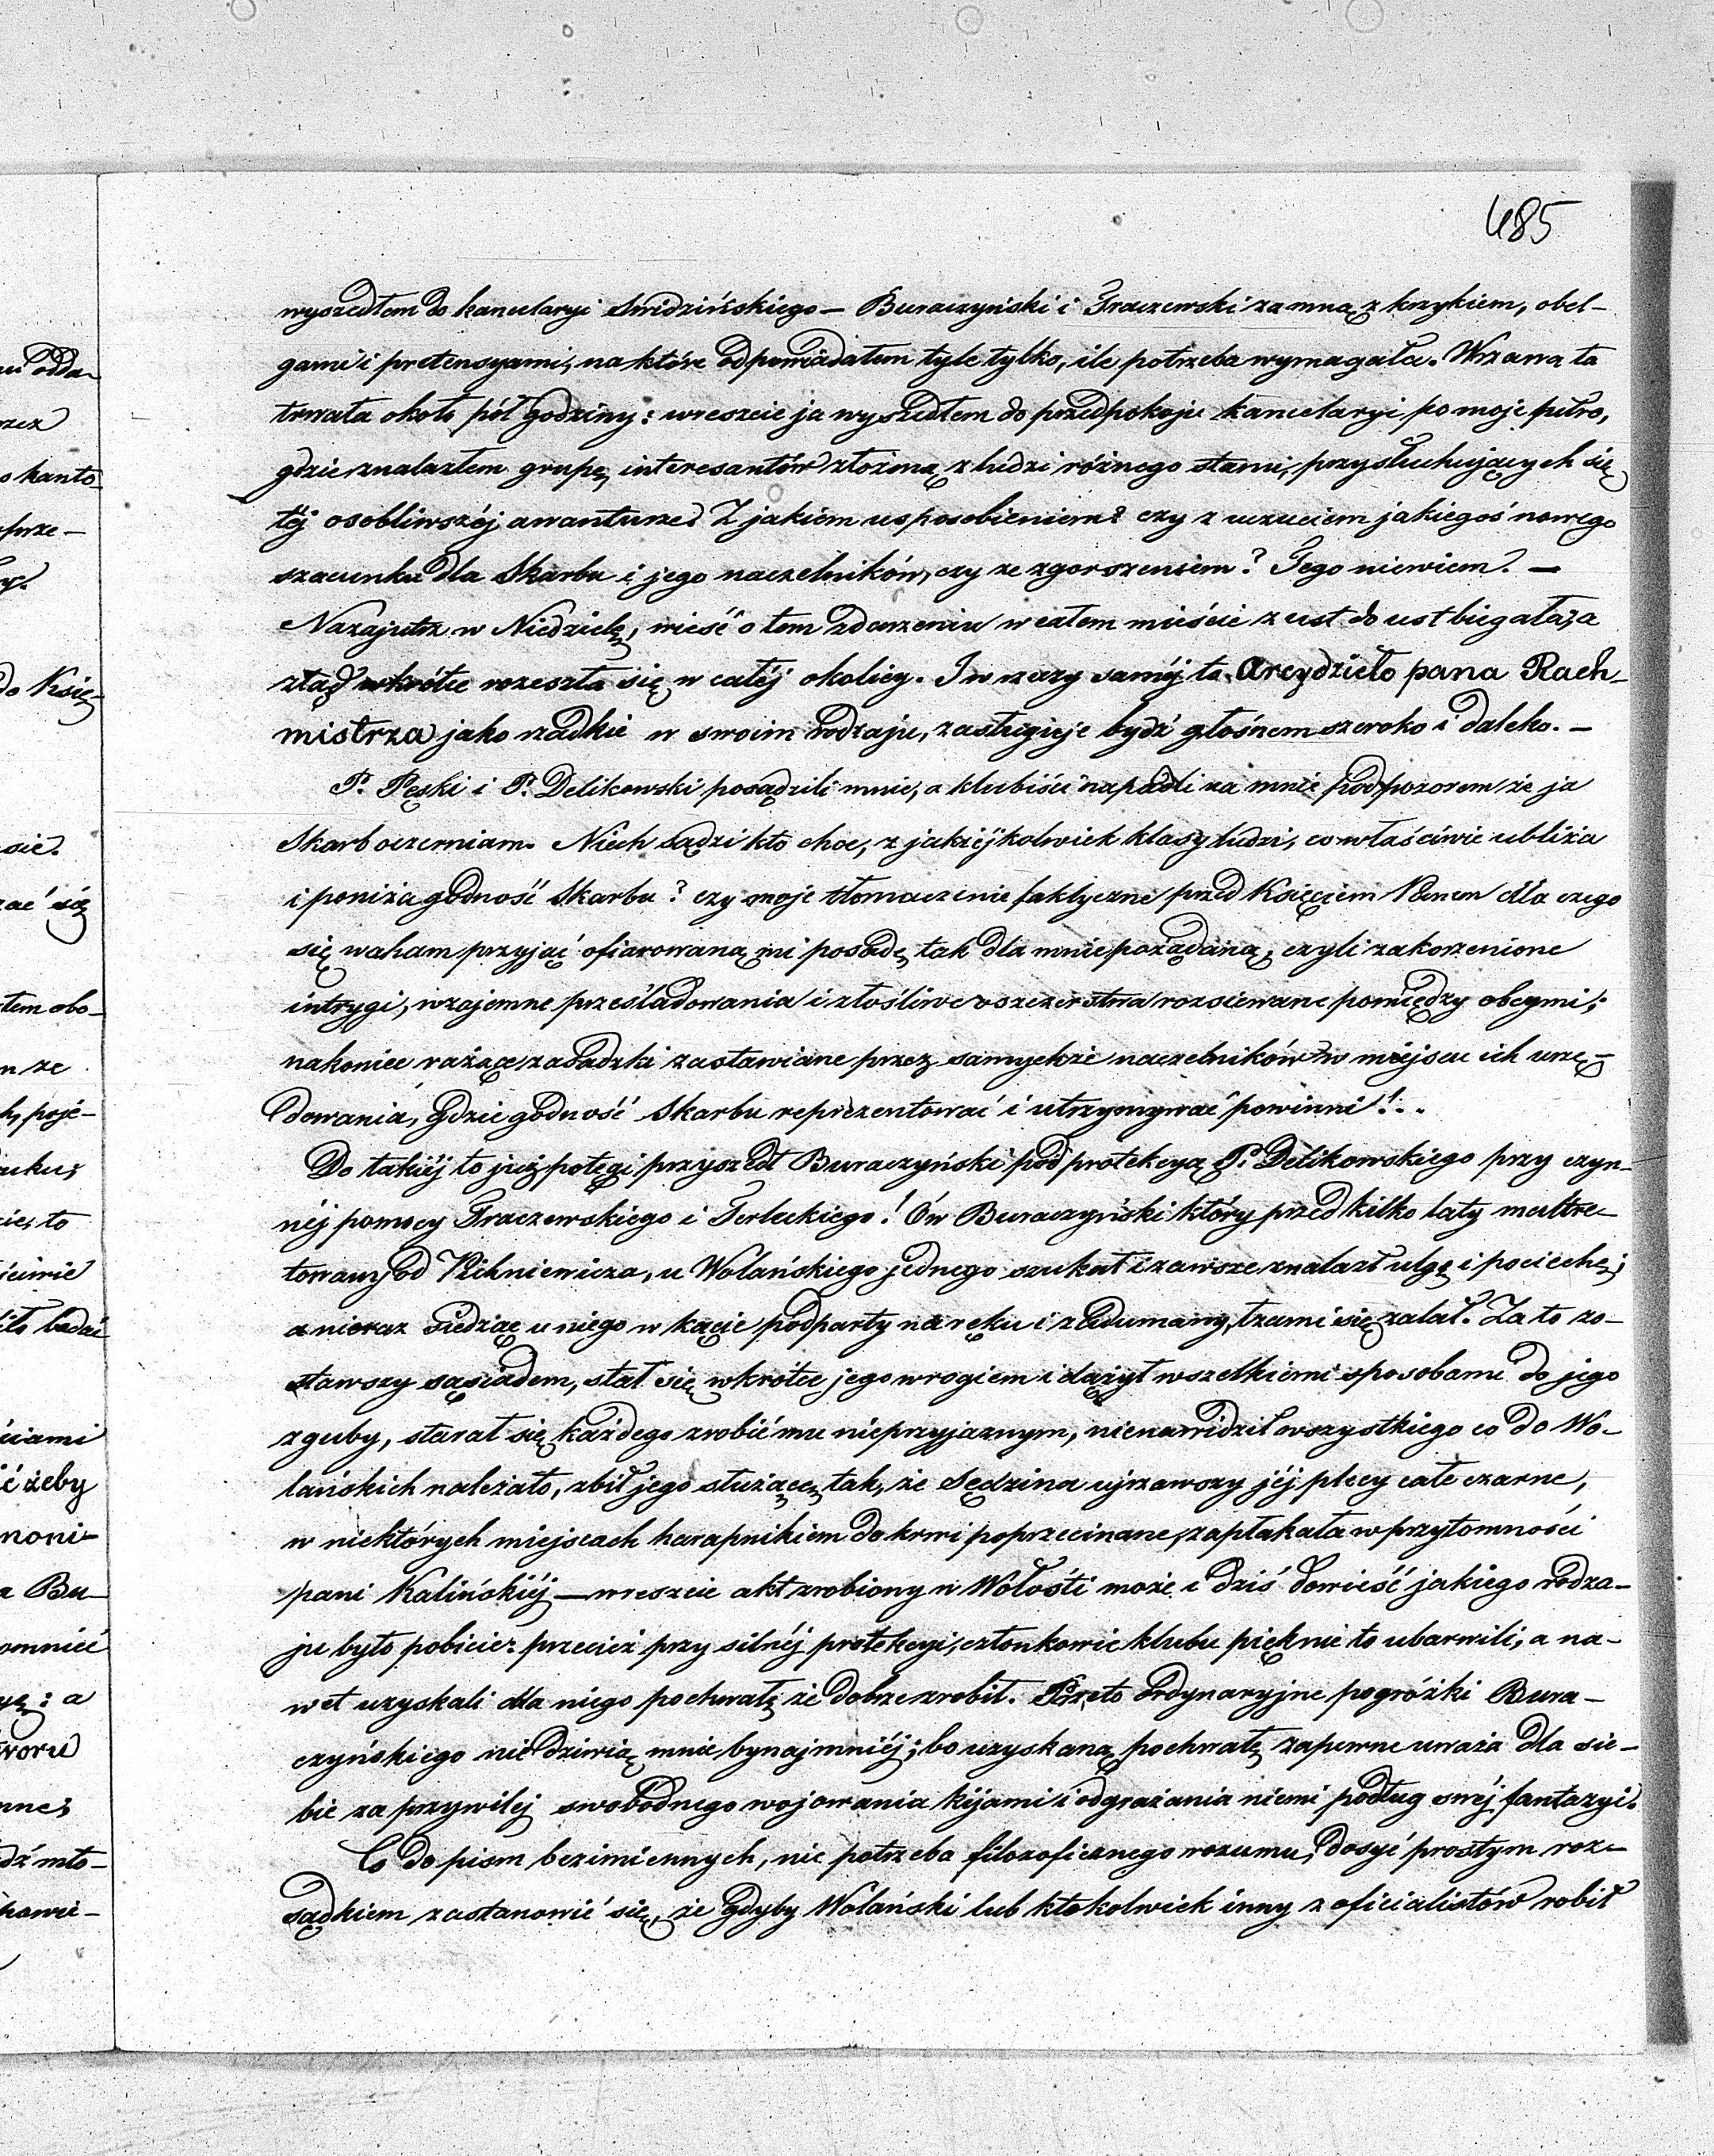 485
wyszedłem do kancelaryi Swidzińskiego — Buraczyński i Traczewski za mną z krzykiem, obel-
gami i pretensyami, na które odpowiadałem tyle tylko, ile potrzeba wymagała. Wrzawa ta
trwała około pół godziny: wreszcie ja wyszedłem do przedpokoju kancelaryi po moje futro,
gdzie znalazłem grupę interesantów złożoną z ludzi różnego stanu, przysłuchujących się
téj osobliwszéj awanturze. Z jakiem usposobieniem? czy z uczuciem jakiegoś nowego
szacunku dla Skarbu i jego naczelników, czy ze zgorszeniem? Tego niewiem. —
Nazajutrz w Niedzielę, wieść o tem zdarzeniu w całem mieście z ust do ust biegała, a
ztąd wkrótce rozeszła się w całéj okolicy. I w rzeczy saméj to Arcydzieło pana Rach-
mistrza jako rzadkie w swoim rodzaju, zasługuje bydź głośnem szeroko i daleko. —
P. Pęski i P. Delikowski posądzili mnie, a klubiści napadli na mnie pod pozorem że ja
Skarb oczerniam. Niech sądzi kto chce, z jakiéjkolwiek klasy ludzi, co właściwie ubliża
i poniża godność Skarbu? czy moje tłomaczenie faktyczne przed Księciem Panem dla czego
się waham przyjąć ofiarowaną mi posadę tak dla mnie pożądaną; czyli zakorzenione
intrygi, wzajemne prześladowania i złośliwe oszczerstwa rozsiewane pomiędzy obcymi;
nakoniec rażące zasadzki zastawiane przez samychże naczelników w miejscu ich urzę-
dowania, gdzie godność Skarbu reprezentować i utrzymywać powinni!..
Do takiéj to już potęgi przyszedł Buraczyński pod protekcyą P. Delikowskiego przy czyn-
néj pomocy Traczewskiego i Terleckiego! Ów Buraczyński który przed kilko laty maltre-
towany od Wolańskiego jednego szukał i zawsze znalazł ulgę i pociechę;
a nieraz siedząc u niego w kącie podparty na ręku i zadumany, łzami się zalał. Za to zo-
stawszy sąsiadem, stał się wkrótce jego wrogiem i dążył wszelkiemi sposobami do jego
zguby, starał się każdego zrobić mu nieprzyjaznym, nienawidził wszystkiego co do Wo-
lańskich należało, zbił jego służącę tak, że Sędzina ujrzawszy jéj plecy całe czarne,
w niektórych miejscach harapnikiem do krwi poprzecinane, zapłakała w przytomności
pani Kalińskiéj — wreszcie akt zrobiony w Wołości może i dziś dowieść jakiego rodza-
ju było pobicie: przecież przy silnéj protekcyi, członkowie klubu pięknie to ubarwili, a na-
wet uzyskali dla niego pochwałę że dobrze zrobił. Przeto ordynaryjne pogróżki Bura-
czyńskiego nie dziwią mnie bynajmniéj; bo uzyskaną pochwałę zapewne uważa dla sie-
bie za przywiléj swobodnego wojowania kijami i odgrażania niemi podług swéj fantazyi.
Co do pism bezimiennych, nie potrzeba filozoficznego rozumu, dosyć prostym roz-
sądkiem zastanowić się, że gdyby Wolański lub ktokolwiek inny z oficialistów robił